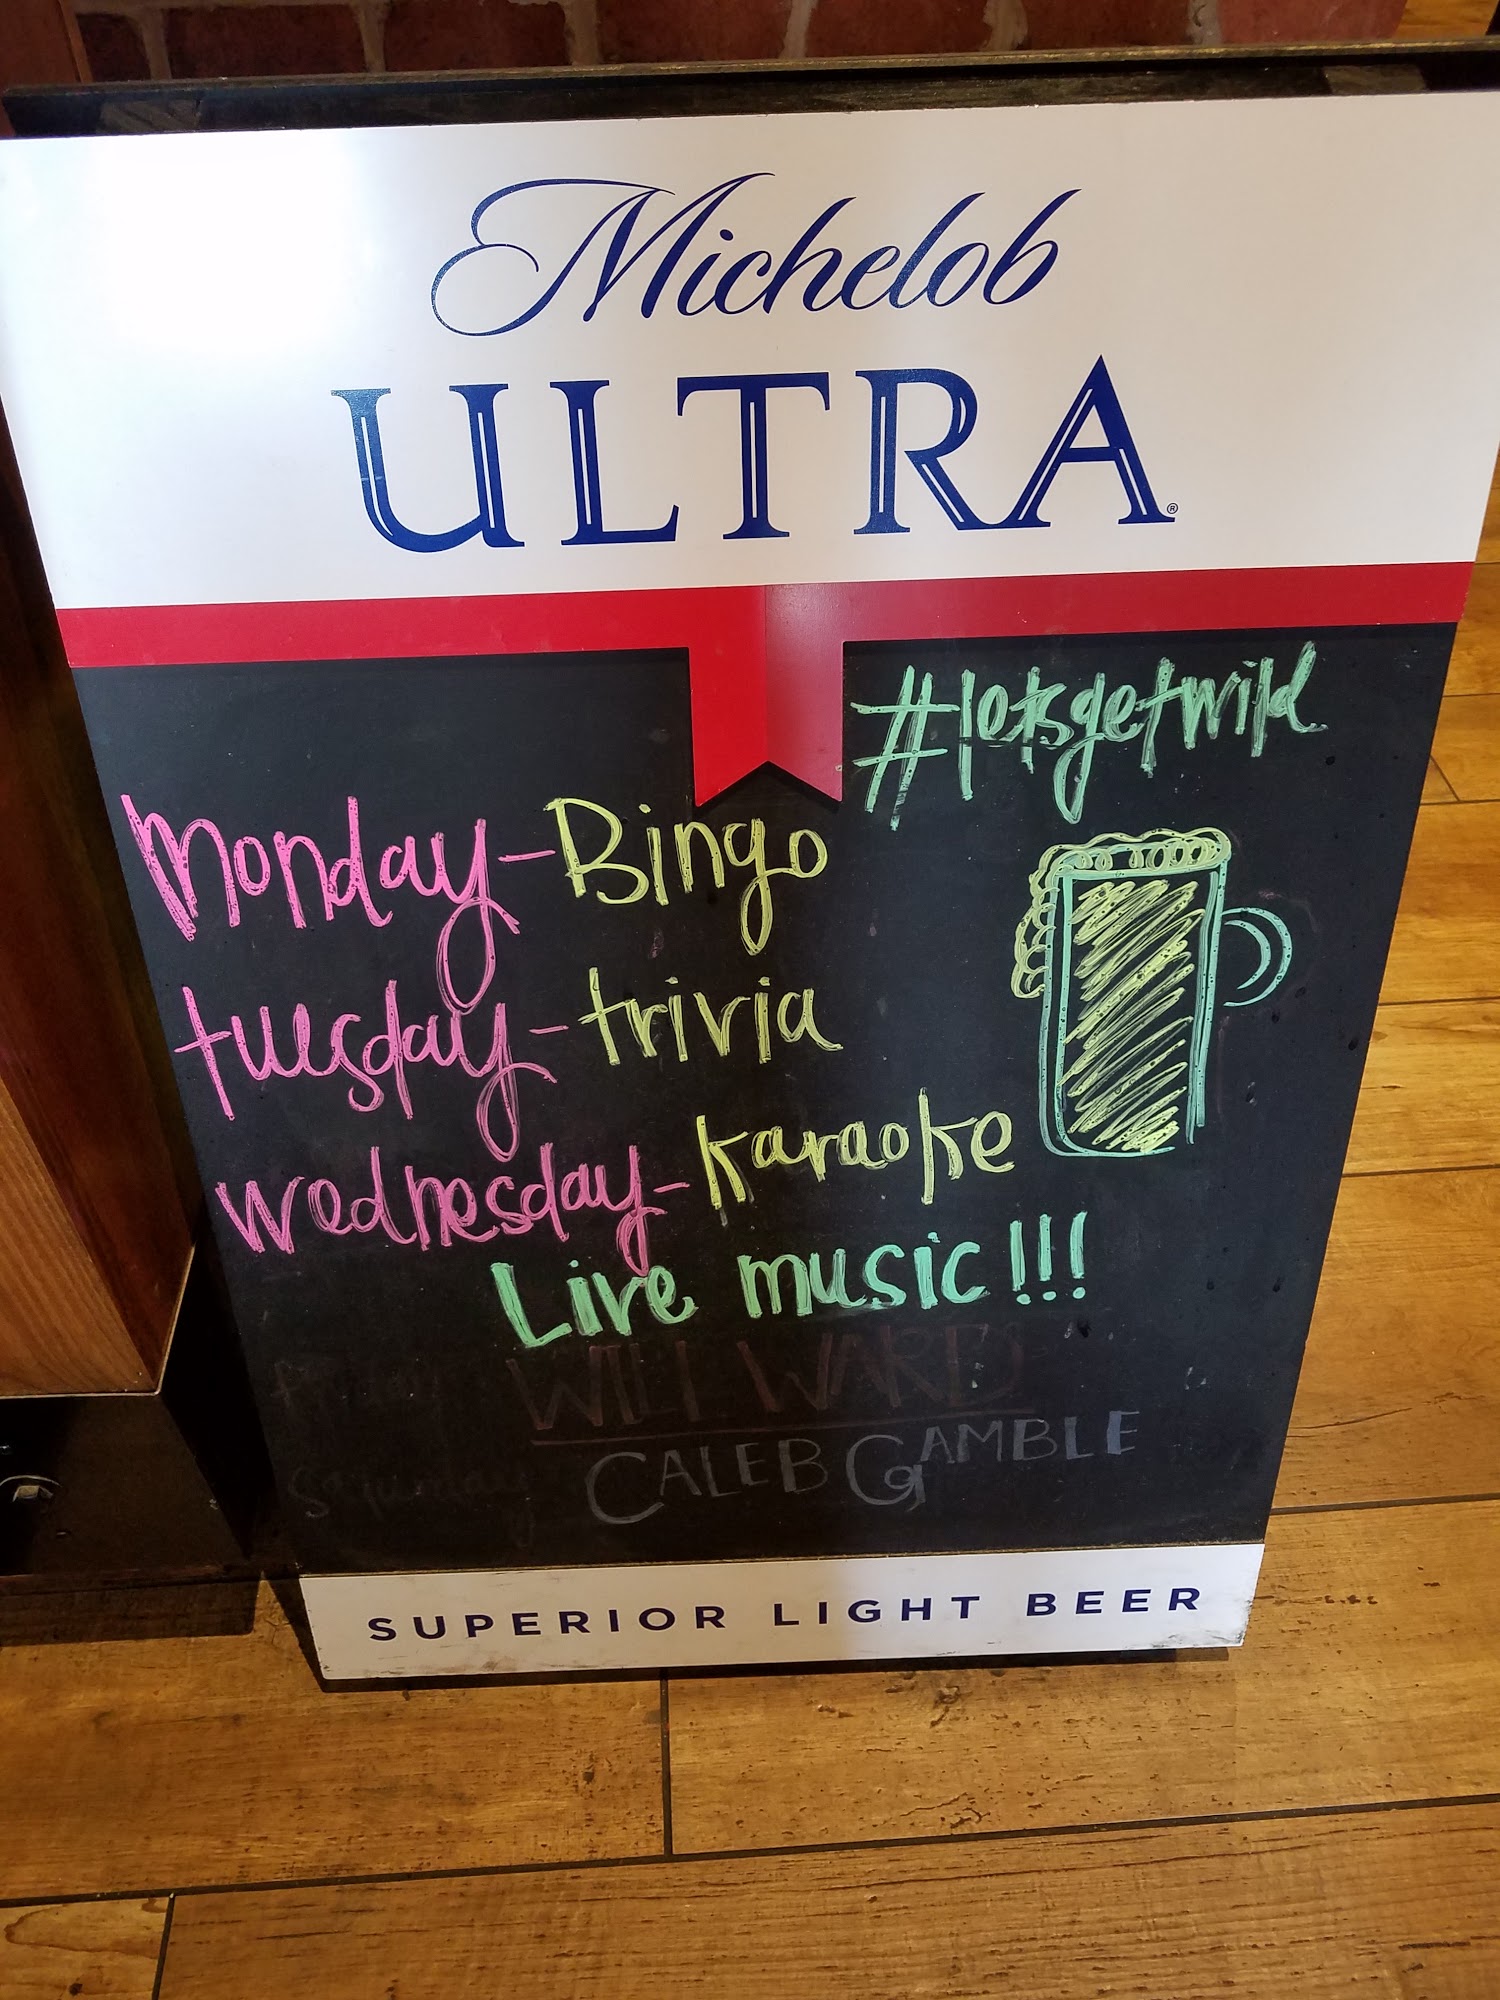 Michelob
ULTRA®
#letsgetwild
Monday-Bingo
tuesday-trivia
wednesday-karaoke
Live music!!!
Friday WILL WARD
Saturday CALEB GAMBLE
SUPERIOR LIGHT BEER